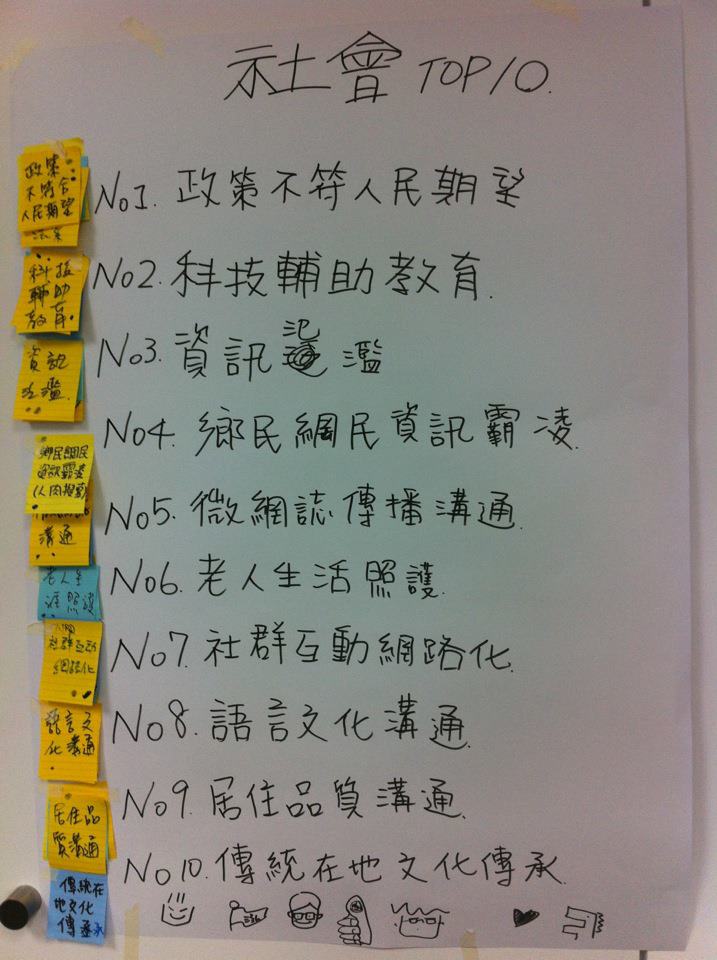 社會 TOP10.
No1. 政策不符人民期望
No2. 科技輔助教育.
No3. 資訊氾濫
No4. 鄉民網民資訊霸凌
No5. 微網誌傳播溝通.
No6. 老人生活照護.
No7. 社群互動網路化.
No8. 語言文化溝通.
No9. 居住品質溝通.
No10. 傳統在地文化傳承.
政策
不符合
人民期望
科技
輔助
教育.
資訊
氾濫.
鄉民網民
資訊霸凌
(人肉搜索)
溝通
老人生
照護
社群互動
網路化
語言文
化溝通
居住品
質溝通
傳統在
地文化
傳承